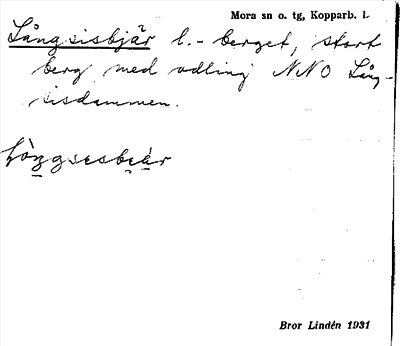 Mora sn o. tg, Kopparb. l.
Långsisbjär l. -berget, stort
berg med odling NNO Lång-
sisdammen.
Bror Lindén 1931